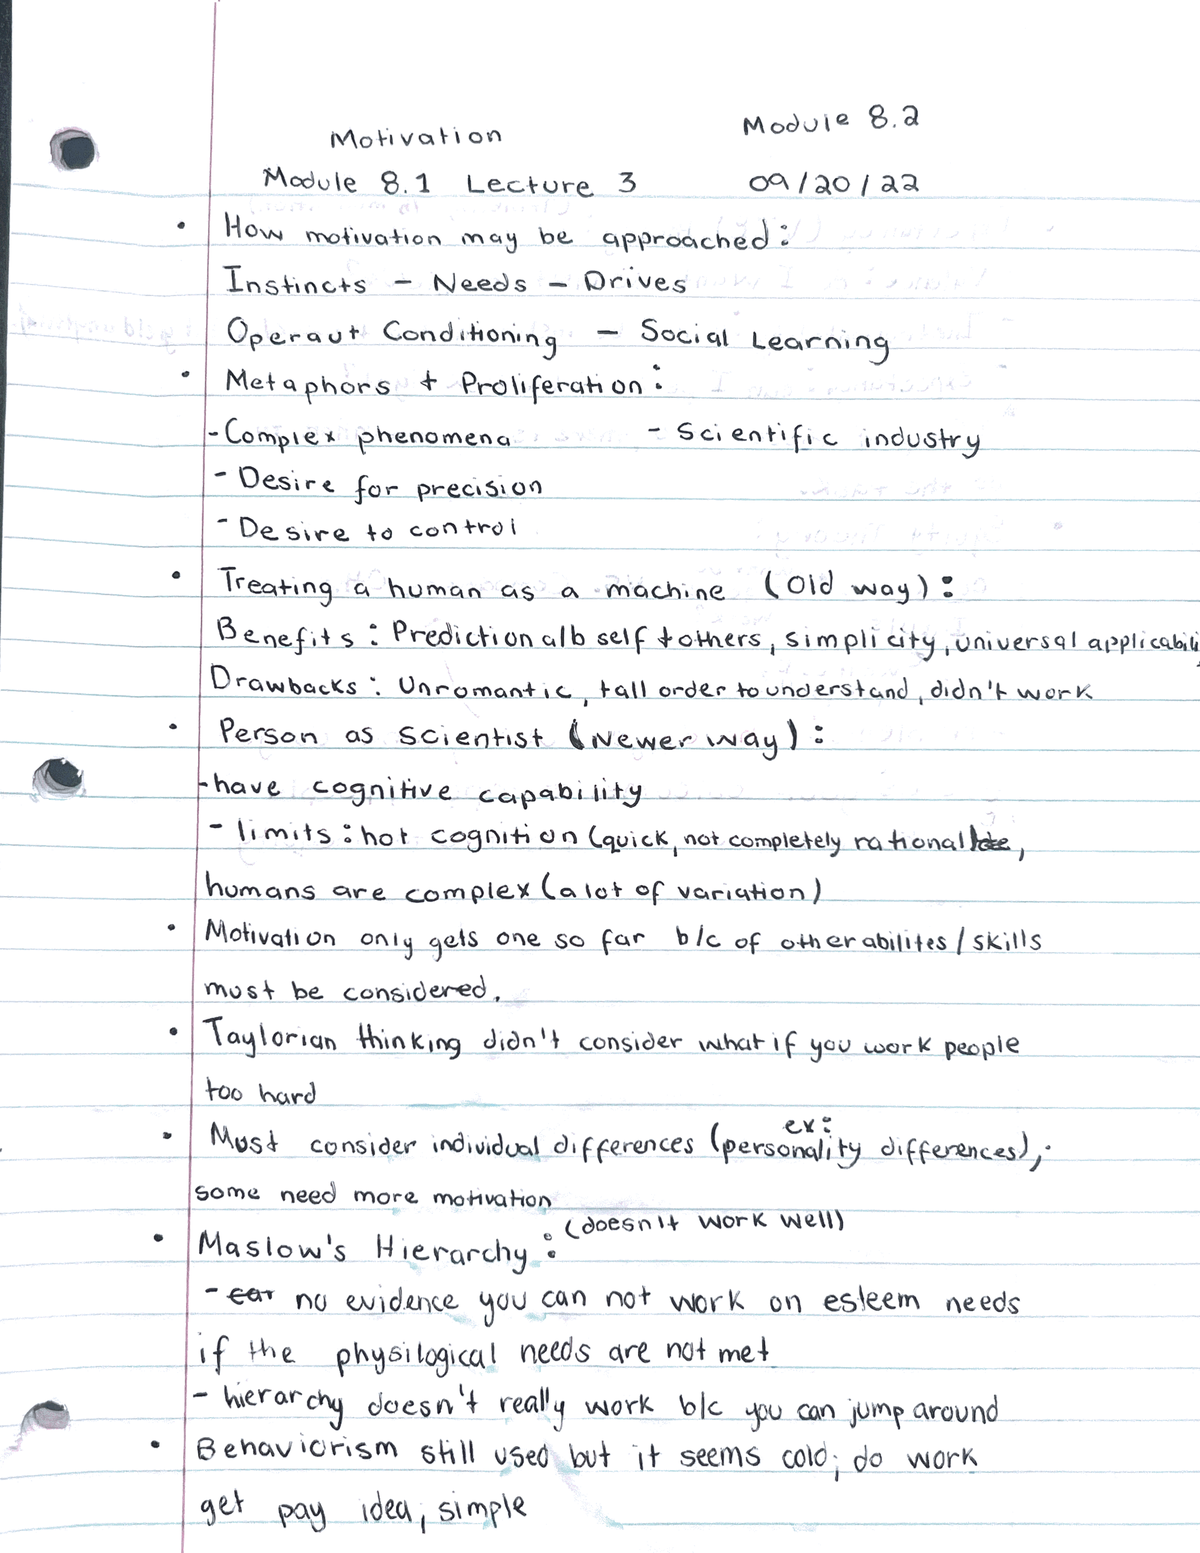 Motivation Module 8.2
Module 8.1 Lecture 3 09/20/22
• How motivation may be approached:
Instincts - Needs - Drives
Operaut Conditioning - Social Learning
• Metaphors + Proliferation:
- Complex phenomena - Scientific industry
- Desire for precision
- Desire to control
• Treating a human as a machine (Old way):
Benefits: Prediction alb self + others, simplicity, universal applicabili
Drawbacks: Unromantic, tall order to understand, didn't work
• Person as Scientist (Newer way):
- have cognitive capability
- limits: hot cognition (quick, not completely rational,
humans are complex (a lot of variation)
• Motivation only gets one so far b/c of other abilites/skills
must be considered.
• Taylorian thinking didn't consider what if you work people
too hard
ex:
• Must consider individual differences (personality differences),
some need more motivation
(doesn't work well)
• Maslow's Hierarchy:
- no evidence you can not work on esteem needs
if the physilogical needs are not met
- hierarchy doesn't really work b/c you can jump around
• Behaviorism still used but it seems cold; do work
get pay idea, simple